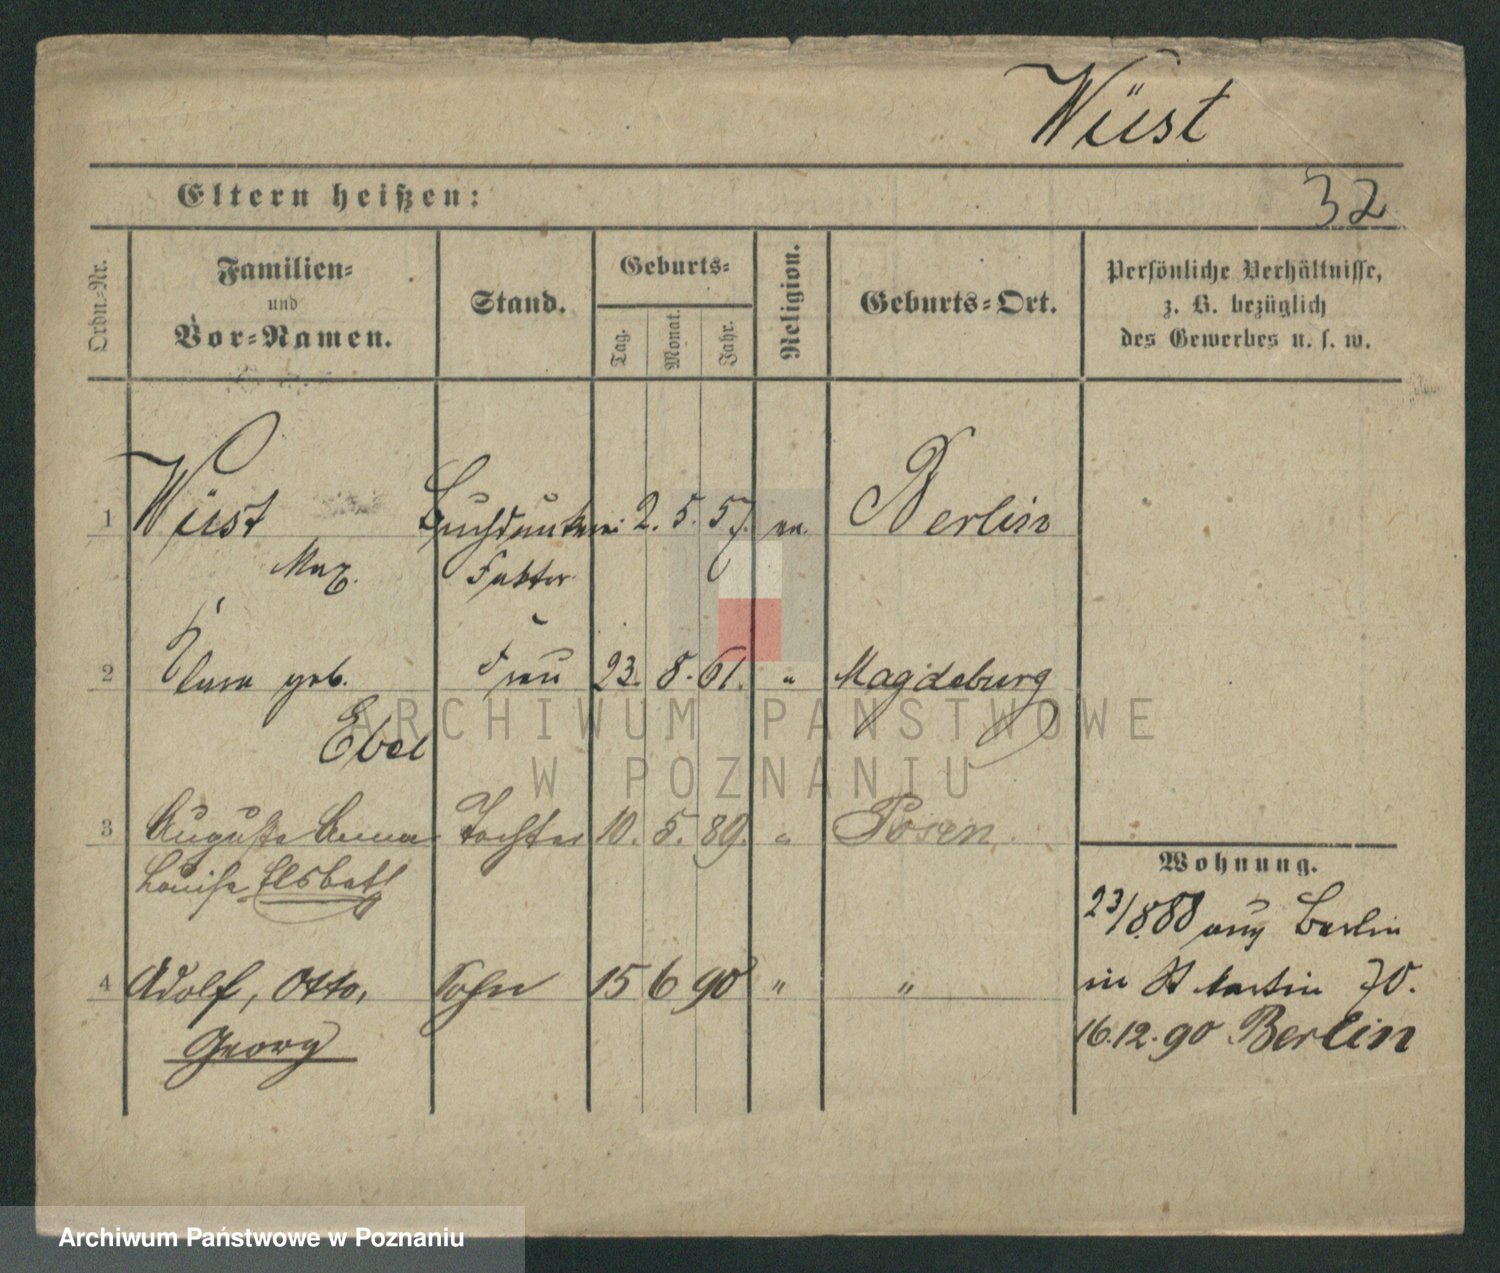 Wüst
32
Eltern heißen:
Ordn.-Nr.
Familien-
und
Vor-Namen.
Stand.
Geburts-
Tag.
Monat.
Jahr.
Religion.
Geburts-Ort.
Persönliche Verhältnisse,
z. B. bezüglich
des Gewerbes u. s. w.
1 Wüst 2. 5. 57. ev. Berlin
Max. Faktor
2 Clara geb. Frau 23. 8. 61. " Magdeburg
Ebel
ARCHIWUM PAŃSTWOWE
W POZNANIU
3 Auguste Anna Tochter 10. 5. 89. " Posen
Louise Elsbeth
4 Adolf, Otto, Sohn 15 6 90 " "
Georg
Wohnung.
23/8.88 aus Berlin
in St Martin 70.
16.12.90 Berlin
Archiwum Państwowe w Poznaniu